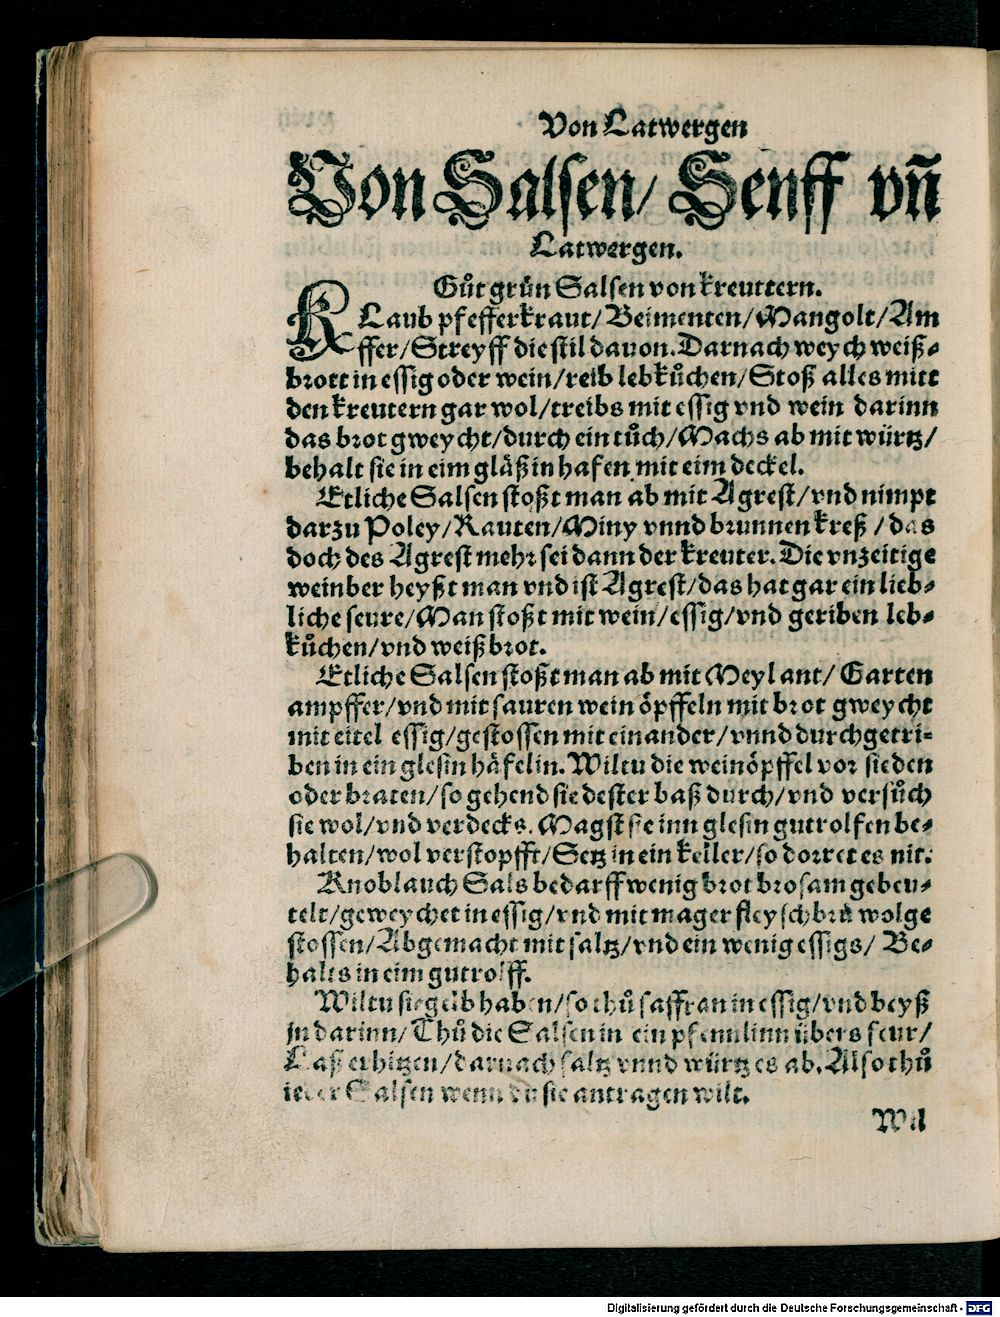 Von Latwergen
Von Salsen/ Senff vñ
Latwergen.
Gůt grün Salsen von kreuttern.
KLaub pfefferkraut/ Beimenten/ Mangolt/ Am
ffer/ Streyff die stil dauon. Darnach weych weiß⸗
brott in essig oder wein/ reib lebkůchen/ Stoß alles mitt
den kreutern gar wol/ treibs mit essig vnd wein darinn
das brot gweycht/ durch ein tůch/ Machs ab mit würtz/
behalt sie in eim gläßin hafen mit eim deckel.
Etliche Salsen stoßt man ab mit Agrest/ vnd nimpt
darzu Poley/ Rauten/ Miny vnnd brunnen kreß / das
doch des Agrest mehr sei dann der kreuter. Die vnzeitige
weinber heyßt man vnd ist Agrest/ das hat gar ein lieb⸗
liche seure/ Man stoßt mit wein/ essig/ vnd geriben leb⸗
kůchen/ vnd weiß brot.
Etliche Salsen stoßt man ab mit Meylant/ Garten
ampffer/ vnd mit sauren wein öpffeln mit brot gweycht
mit eitel essig/ gestossen mit einander/ vnnd durchgetri⸗
ben in ein glesin häfelin. Wiltu die weinöpffel vor sieden
oder braten/ so gehend sie dester baß durch/ vnd versůch
sie wol/ vnd verdecks. Magst sie inn glesin gutrolfen be⸗
halten/ wol verstopfft/ Setz in ein keller/ so dorret es nit.
Knoblauch Sals bedarff wenig brot brosam gebeu⸗
telt/ geweychet in essig/ vnd mit mager fleyschbrü wol ge
stossen/ Abgemacht mit saltz/ vnd ein wenig essigs/ Be⸗
halts in eim gutrolff.
Wiltu sie gelb haben/ so thů saffran in essig/ vnd beyß
jn darinn/ Thů die Salsen in ein pfennlinn übers feur/
Laß erhitzen/ darnach saltz vnnd würtz es ab. Also thů
ieder Salsen wenn du sie antragen wilt.
Wil
Digitalisierung gefördert durch die Deutsche Forschungsgemeinschaft - DFG